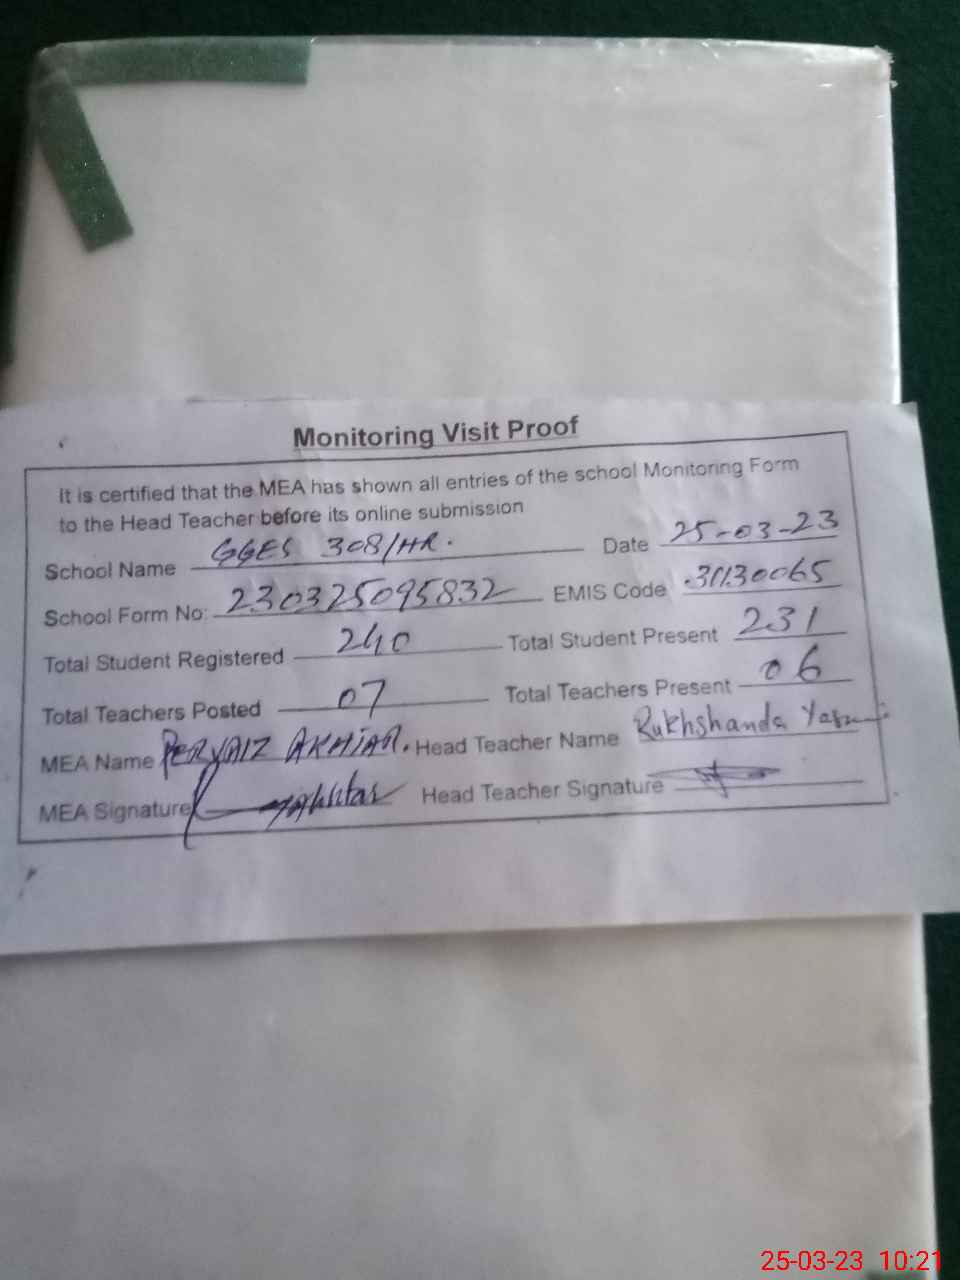 Monitoring Visit Proof
It is certified that the MEA has shown all entries of the school Monitoring Form
to the Head Teacher before its online submission
School Name GGES 308/HR. Date 25-03-23
School Form No: 230325095832 EMIS Code 31130065
Total Student Registered 240 Total Student Present 231
Total Teachers Posted 07 Total Teachers Present 06
MEA Name PERVAIZ AKHTAR. Head Teacher Name Rukhshanda
MEA Signature Head Teacher Signature
25-03-23 10:21